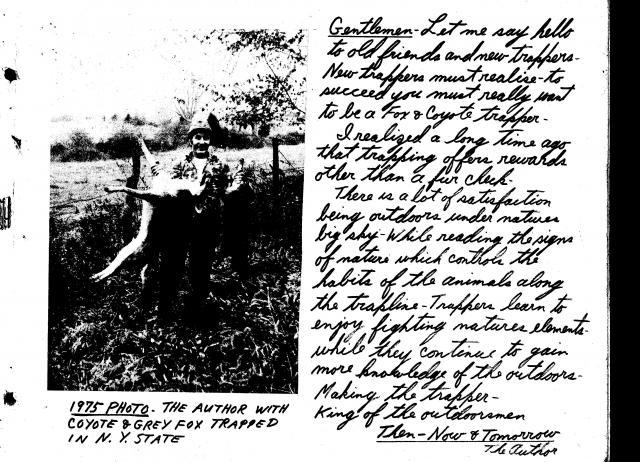 Gentlemen-Let me say hello
to old friends and new trappers-
New trappers must realise-to
succeed you must really want
to be a Fox & Coyote trapper-
I realized a long time ago
that trapping offers rewards
other than a fur check.
There is a lot of satisfaction
being outdoors under natures
big sky-While reading the signs
of nature which controls the
habits of the animals along
the trapline-Trappers learn to
enjoy fighting natures elements-
while they continue to gain
more knowledge of the outdoors-
Making the trapper-
King of the outdoorsmen
Then-Now & Tomorrow
The Author
1975 PHOTO- THE AUTHOR WITH
COYOTE & GREY FOX TRAPPED
IN N.Y. STATE